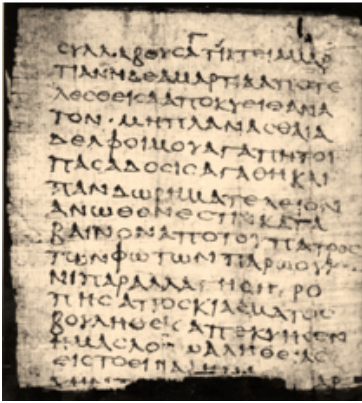 ϹΥΛΛΑΒΟΥϹΑ ΤΙΚΤΕΙ ΑΜΑΡ
ΤΙΑΝ Η ΔΕ ΑΜΑΡΤΙΑ ΑΠΟΤΕ
ΛΕϹΘΕΙϹΑ ΑΠΟΚΥΕΙ ΘΑΝΑ
ΤΟΝ · ΜΗ ΠΛΑΝΑϹΘΑΙ Α
ΔΕΛΦΟΙ ΜΟΥ ΑΓΑΠΗΤΟΙ
ΠΑϹΑ ΔΟϹΙϹ ΑΓΑΘΗ ΚΑΙ
ΠΑΝ ΔΩΡΗΜΑ ΤΕΛΕΙΟΝ
ΑΝΩΘΕΝ ΕϹΤΙΝ ΚΑΤΑ
ΒΑΙΝΟΝ ΑΠΟ ΤΟΥ ΠΑΤΡΟϹ
ΤΩΝ ΦΩΤΩΝ ΠΑΡ Ω ΟΥΚ Ε
ΝΙ ΠΑΡΑΛΛΑΓΗ Η ΤΡΟ
ΠΗϹ ΑΠΟϹΚΙΑϹΜΑΤΟϹ
ΒΟΥΛΗΘΕΙϹ ΑΠΕΚΥΗϹΕΝ
ΗΜΑϹ ΛΟΓΩ ΑΛΗΘΕΙΑϹ
ΕΙϹ ΤΟ ΕΙΝΑΙ